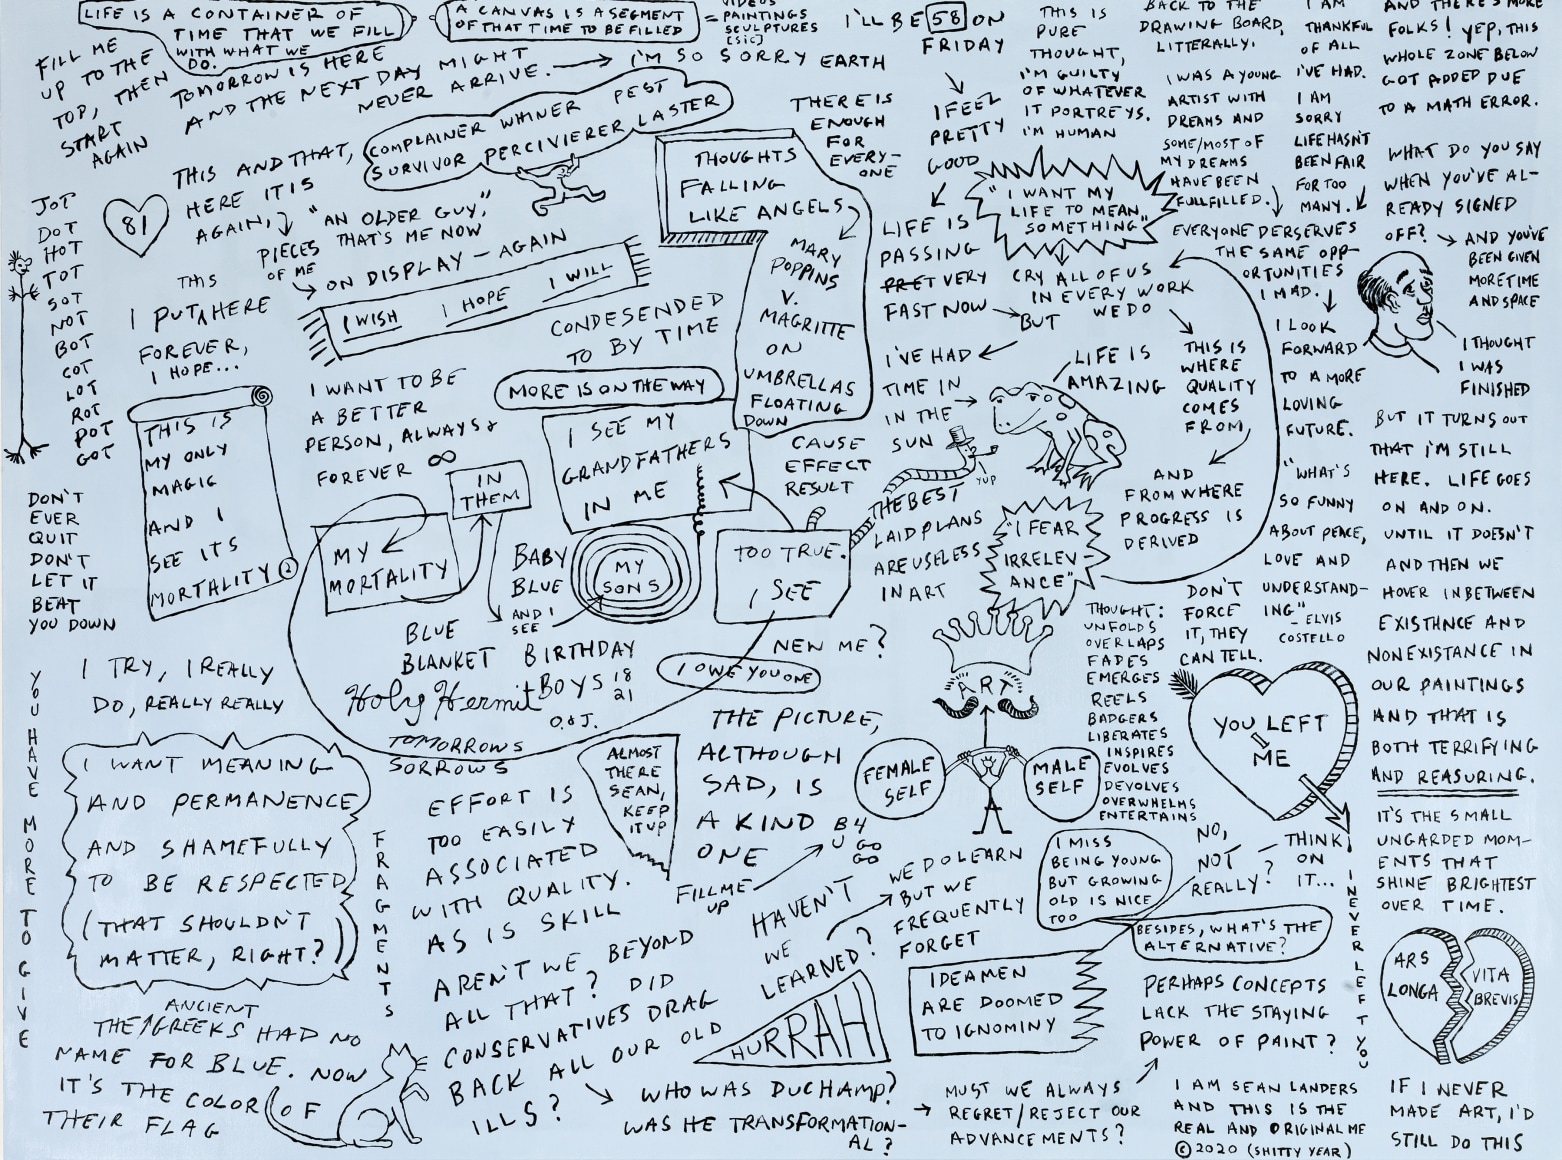 LIFE IS A CONTAINER OF
TIME THAT WE FILL
WITH WHAT WE
DO.
A CANVAS IS A SEGMENT
OF THAT TIME TO BE FILLED
=
VIDEOS
PAINTINGS
SCULPTURES
[SIC]
I'LL BE 58 ON
FRIDAY
I FEEL
PRETTY
GOOD
LIFE IS
PASSING
PRET VERY
FAST NOW
BUT
I'VE HAD
TIME IN
IN THE
SUN
FILL ME
UP TO THE
TOP, THEN
START
AGAIN
TOMORROW IS HERE
AND THE NEXT DAY MIGHT
NEVER ARRIVE.
I'M SO SORRY EARTH
THIS AND THAT,
HERE IT IS
AGAIN,
PIECES
OF ME
COMPLAINER WHINER PEST
SURVIVOR PERCIVIERER LASTER
"AN OLDER GUY,"
THAT'S ME NOW
ON DISPLAY - AGAIN
I WISH I HOPE I WILL
81
JOT
DOT
HOT
TOT
SOT
NOT
BOT
COT
LOT
ROT
POT
GOT
DON'T
EVER
QUIT
DON'T
LET IT
BEAT
YOU DOWN
THIS
I PUT HERE
FOREVER,
I HOPE...
THIS IS
MY ONLY
MAGIC
AND I
SEE ITS
MORTALITY
I WANT TO BE
A BETTER
PERSON, ALWAYS &
FOREVER ∞
CONDESENDED
TO BY TIME
MORE IS ON THE WAY
THOUGHTS
FALLING
LIKE ANGELS
MARY
POPPINS
V.
MAGRITTE
ON
UMBRELLAS
FLOATING
DOWN
THERE IS
ENOUGH
FOR
EVERY-
ONE
THIS IS
PURE
THOUGHT,
I'M GUILTY
OF WHATEVER
IT PORTREYS.
I'M HUMAN
"I WANT MY
LIFE TO MEAN
SOMETHING"
CRY ALL OF US
IN EVERY WORK
WE DO
THIS IS
WHERE
QUALITY
COMES
FROM,
AND
FROM WHERE
PROGRESS IS
DERIVED
LIFE IS
AMAZING
YUP
BACK TO THE
DRAWING BOARD,
LITTERALLY.
I WAS A YOUNG
ARTIST WITH
DREAMS AND
SOME/MOST OF
MY DREAMS
HAVE BEEN
FULLFILLED.
I AM
THANKFUL
OF ALL
I'VE HAD.
I AM
SORRY
LIFE HASN'T
BEEN FAIR
FOR TOO
MANY.
EVERYONE DESERVES
THE SAME OPP-
ORTUNITIES
I MAD.
I LOOK
FORWARD
TO A MORE
LOVING
FUTURE.
"WHAT'S
SO FUNNY
ABOUT PEACE,
LOVE AND
UNDERSTAND-
ING"
- ELVIS
COSTELLO
AND THERE'S MORE
FOLKS! YEP, THIS
WHOLE ZONE BELOW
GOT ADDED DUE
TO A MATH ERROR.
WHAT DO YOU SAY
WHEN YOU'VE AL-
READY SIGNED
OFF?
AND YOU'VE
BEEN GIVEN
MORE TIME
AND SPACE
I THOUGHT
I WAS
FINISHED
BUT IT TURNS OUT
THAT I'M STILL
HERE. LIFE GOES
ON AND ON.
UNTIL IT DOESN'T
AND THEN WE
HOVER INBETWEEN
EXISTNCE AND
NONEXISTANCE IN
OUR PAINTINGS
AND THAT IS
BOTH TERRIFYING
AND REASURING.
IT'S THE SMALL
UNGARDED MOM-
ENTS THAT
SHINE BRIGHTEST
OVER TIME.
ARS
LONGA
VITA
BREVIS
IF I NEVER
MADE ART, I'D
STILL DO THIS
MY
MORTALITY
IN
THEM
I SEE MY
GRANDFATHERS
IN ME
BABY
BLUE
AND I
SEE
MY
SONS
TOO TRUE.
I SEE
CAUSE
EFFECT
RESULT
THE BEST
LAID PLANS
ARE USELESS
IN ART
"I FEAR
IRRELEV-
ANCE"
BLUE
BLANKET BIRTHDAY
Holy Hermit BOYS 18
21
O. & J.
TOMORROWS
SORROWS
NEW ME?
I OWE YOU ONE
I TRY, I REALLY
DO, REALLY REALLY
YOU HAVE MORE TO GIVE
I WANT MEANING
AND PERMANENCE
AND SHAMEFULLY
TO BE RESPECTED
(THAT SHOULDN'T
MATTER, RIGHT?)
FRAGMENTS
ANCIENT
THE GREEKS HAD NO
NAME FOR BLUE. NOW
IT'S THE COLOR OF
THEIR FLAG
EFFORT IS
TOO EASILY
ASSOCIATED
WITH QUALITY.
AS IS SKILL
ALMOST
THERE
SEAN,
KEEP
IT UP
THE PICTURE,
ALTHOUGH
SAD, IS
A KIND
ONE
FILL ME
UP
B4
U GO
GO
AREN'T WE BEYOND
ALL THAT? DID
CONSERVATIVES DRAG
BACK ALL OUR OLD
ILLS?
HAVEN'T
WE
LEARNED?
WE DO LEARN
BUT WE
FREQUENTLY
FORGET
HURRAH
WHO WAS DUCHAMP?
WAS HE TRANSFORMATION-
AL?
ART
FEMALE
SELF
MALE
SELF
THOUGHT:
UNFOLDS
OVERLAPS
FADES
EMERGES
REELS
BADGERS
LIBERATES
INSPIRES
EVOLVES
DEVOLVES
OVERWHELMS
ENTERTAINS
DON'T
FORCE
IT, THEY
CAN TELL.
YOU LEFT
ME
I NEVER LEFT YOU
I MISS
BEING YOUNG
BUT GROWING
OLD IS NICE
TOO
NO,
NOT
REALLY?
THINK
ON
IT...
BESIDES, WHAT'S THE
ALTERNATIVE?
IDEAMEN
ARE DOOMED
TO IGNOMINY
PERHAPS CONCEPTS
LACK THE STAYING
POWER OF PAINT?
MUST WE ALWAYS
REGRET/REJECT OUR
ADVANCEMENTS?
I AM SEAN LANDERS
AND THIS IS THE
REAL AND ORIGINAL ME
© 2020 (SHITTY YEAR)